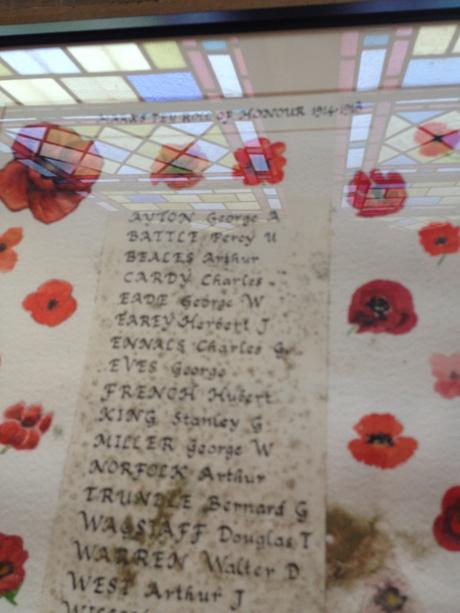 MARKS TEY ROLL OF HONOUR 1914-1918
AYTON George A
BATTLE Percy U
BEALES Arthur
CARDY Charles
EADE George W
FAREY Herbert J
ENNALS Charles G
EVES George
FRENCH Hubert
KING Stanley G
MILLER George W
NORFOLK Arthur
TRUNDLE Bernard G
WAGSTAFF Douglas T
WARREN Walter D
WEST Arthur J